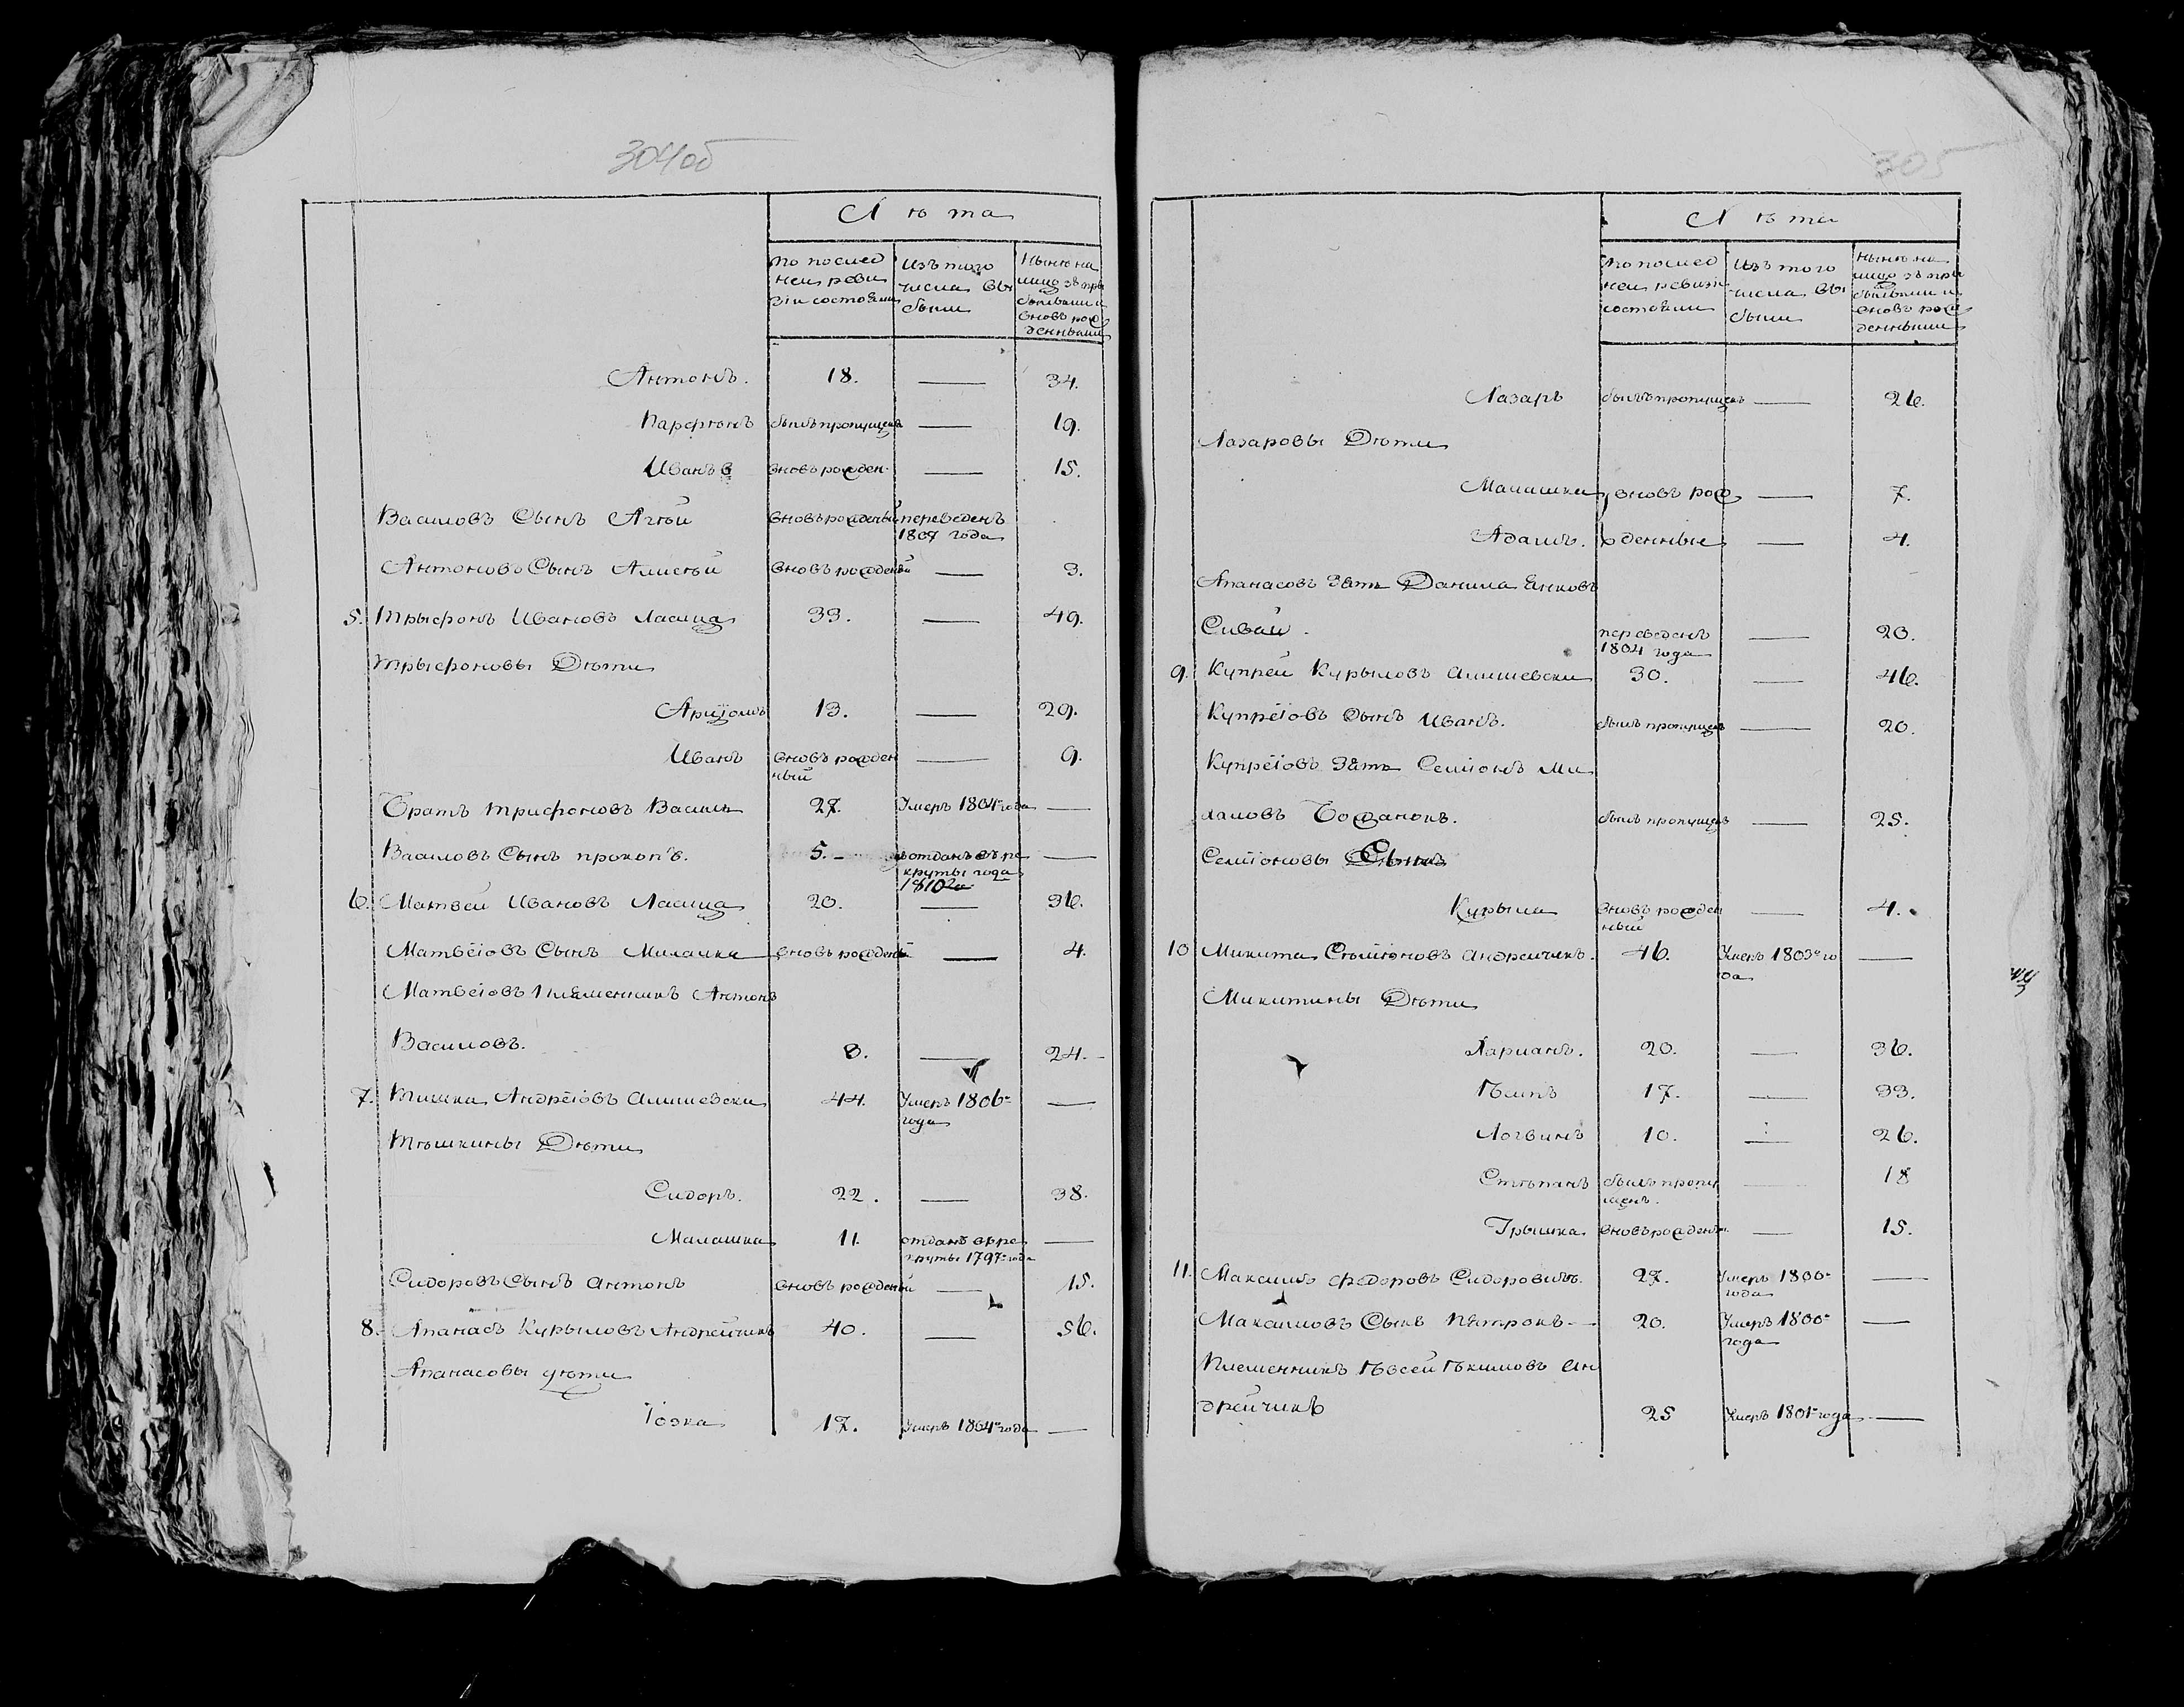 304об
Лѣта
по послед
ней реви
зіи состояли
Изъ того
числа вы
были
Нынѣ на
лицо зъ при
былыми и
вновь рож
денными
Антонъ. 18. — 34.
Парфѣнъ былъ пропущенъ — 19.
Иванъ вновь рожден. — 15.
Василовъ Сынъ Агѣй вновь рожденый переведенъ
1807 года
Антоновъ Сынъ Алисѣй вновь рожденый — 3.
5. Трыфонъ Ивановъ Ласица 33. — 49.
Трыфоновы Дѣти
Арціомъ 13. — 29.
Иванъ вновь рожден — 9.
ный
Братъ Трифоновъ Василь 27. Умеръ 1804 года —
Василовъ Сынъ прокопъ. 5. — отданъ въ ре —
круты года
1810
6. Матвей Ивановъ Ласица 20. — 36.
Матвеіовъ Сынъ Миланка вновь рожденый — 4.
Матвеіовъ Племенникъ Антонъ
Василовъ. 8. — 24.
7. Тишка Андреіовъ Алишевски 44. Умеръ 1806
года —
Тѣшкины Дѣти
Сидоръ. 22. — 38.
Малашка 11 отданъ в ре —
круты 1797 года
Сидоровъ Сынъ Антонъ вновь рожденый — 15.
8. Апанасъ Курыловъ Андрейчикъ 40. — 56.
Апанасовы дѣти
Іозка 17. Умеръ 1804 года —
305
Лѣта
по послед
ней ревизіи
состояли
Изъ того
числа вы
были
Нынѣ на
лицо зъ при
былыми и
вновь рож
денными
Лазаръ былъ пропущенъ — 26.
Лазаровы Дѣти
Малашка вновь рож — 7.
Адамъ. денные — 4.
Апанасовъ Зять Данила Янковъ
Сивай. переведенъ — 20.
1804 года
9. Купрей Курыловъ Алишевски 30. — 46.
Купреіовъ Сынъ Иванъ. былъ пропущенъ — 20.
Купреіовъ Зять Семіонъ Ми
халовъ Божанокъ. былъ пропущенъ — 25.
Семіоновы Сынъ
Курыла вновь рожден — 4.
ный
10 Микита Сѣміоновъ Андрейчикъ. 46. Умеръ 1803 го —
да
Микитины Дѣти
Ларианъ. 20. — 36.
Пилипъ 17. — 33.
Логвинъ 10. — 26.
Стѣпанъ былъ пропу — 18
щенъ.
Грышка вновь рожденъ — 15.
11. Максимъ Федоровъ Сидоровичъ. 27. Умеръ 1800 —
года
Максимовъ Сынъ Пятрокъ — 20. Умеръ 1800 —
года
Племенникъ Якимовъ Ан
дрейчикъ 25 Умеръ 1801 года —